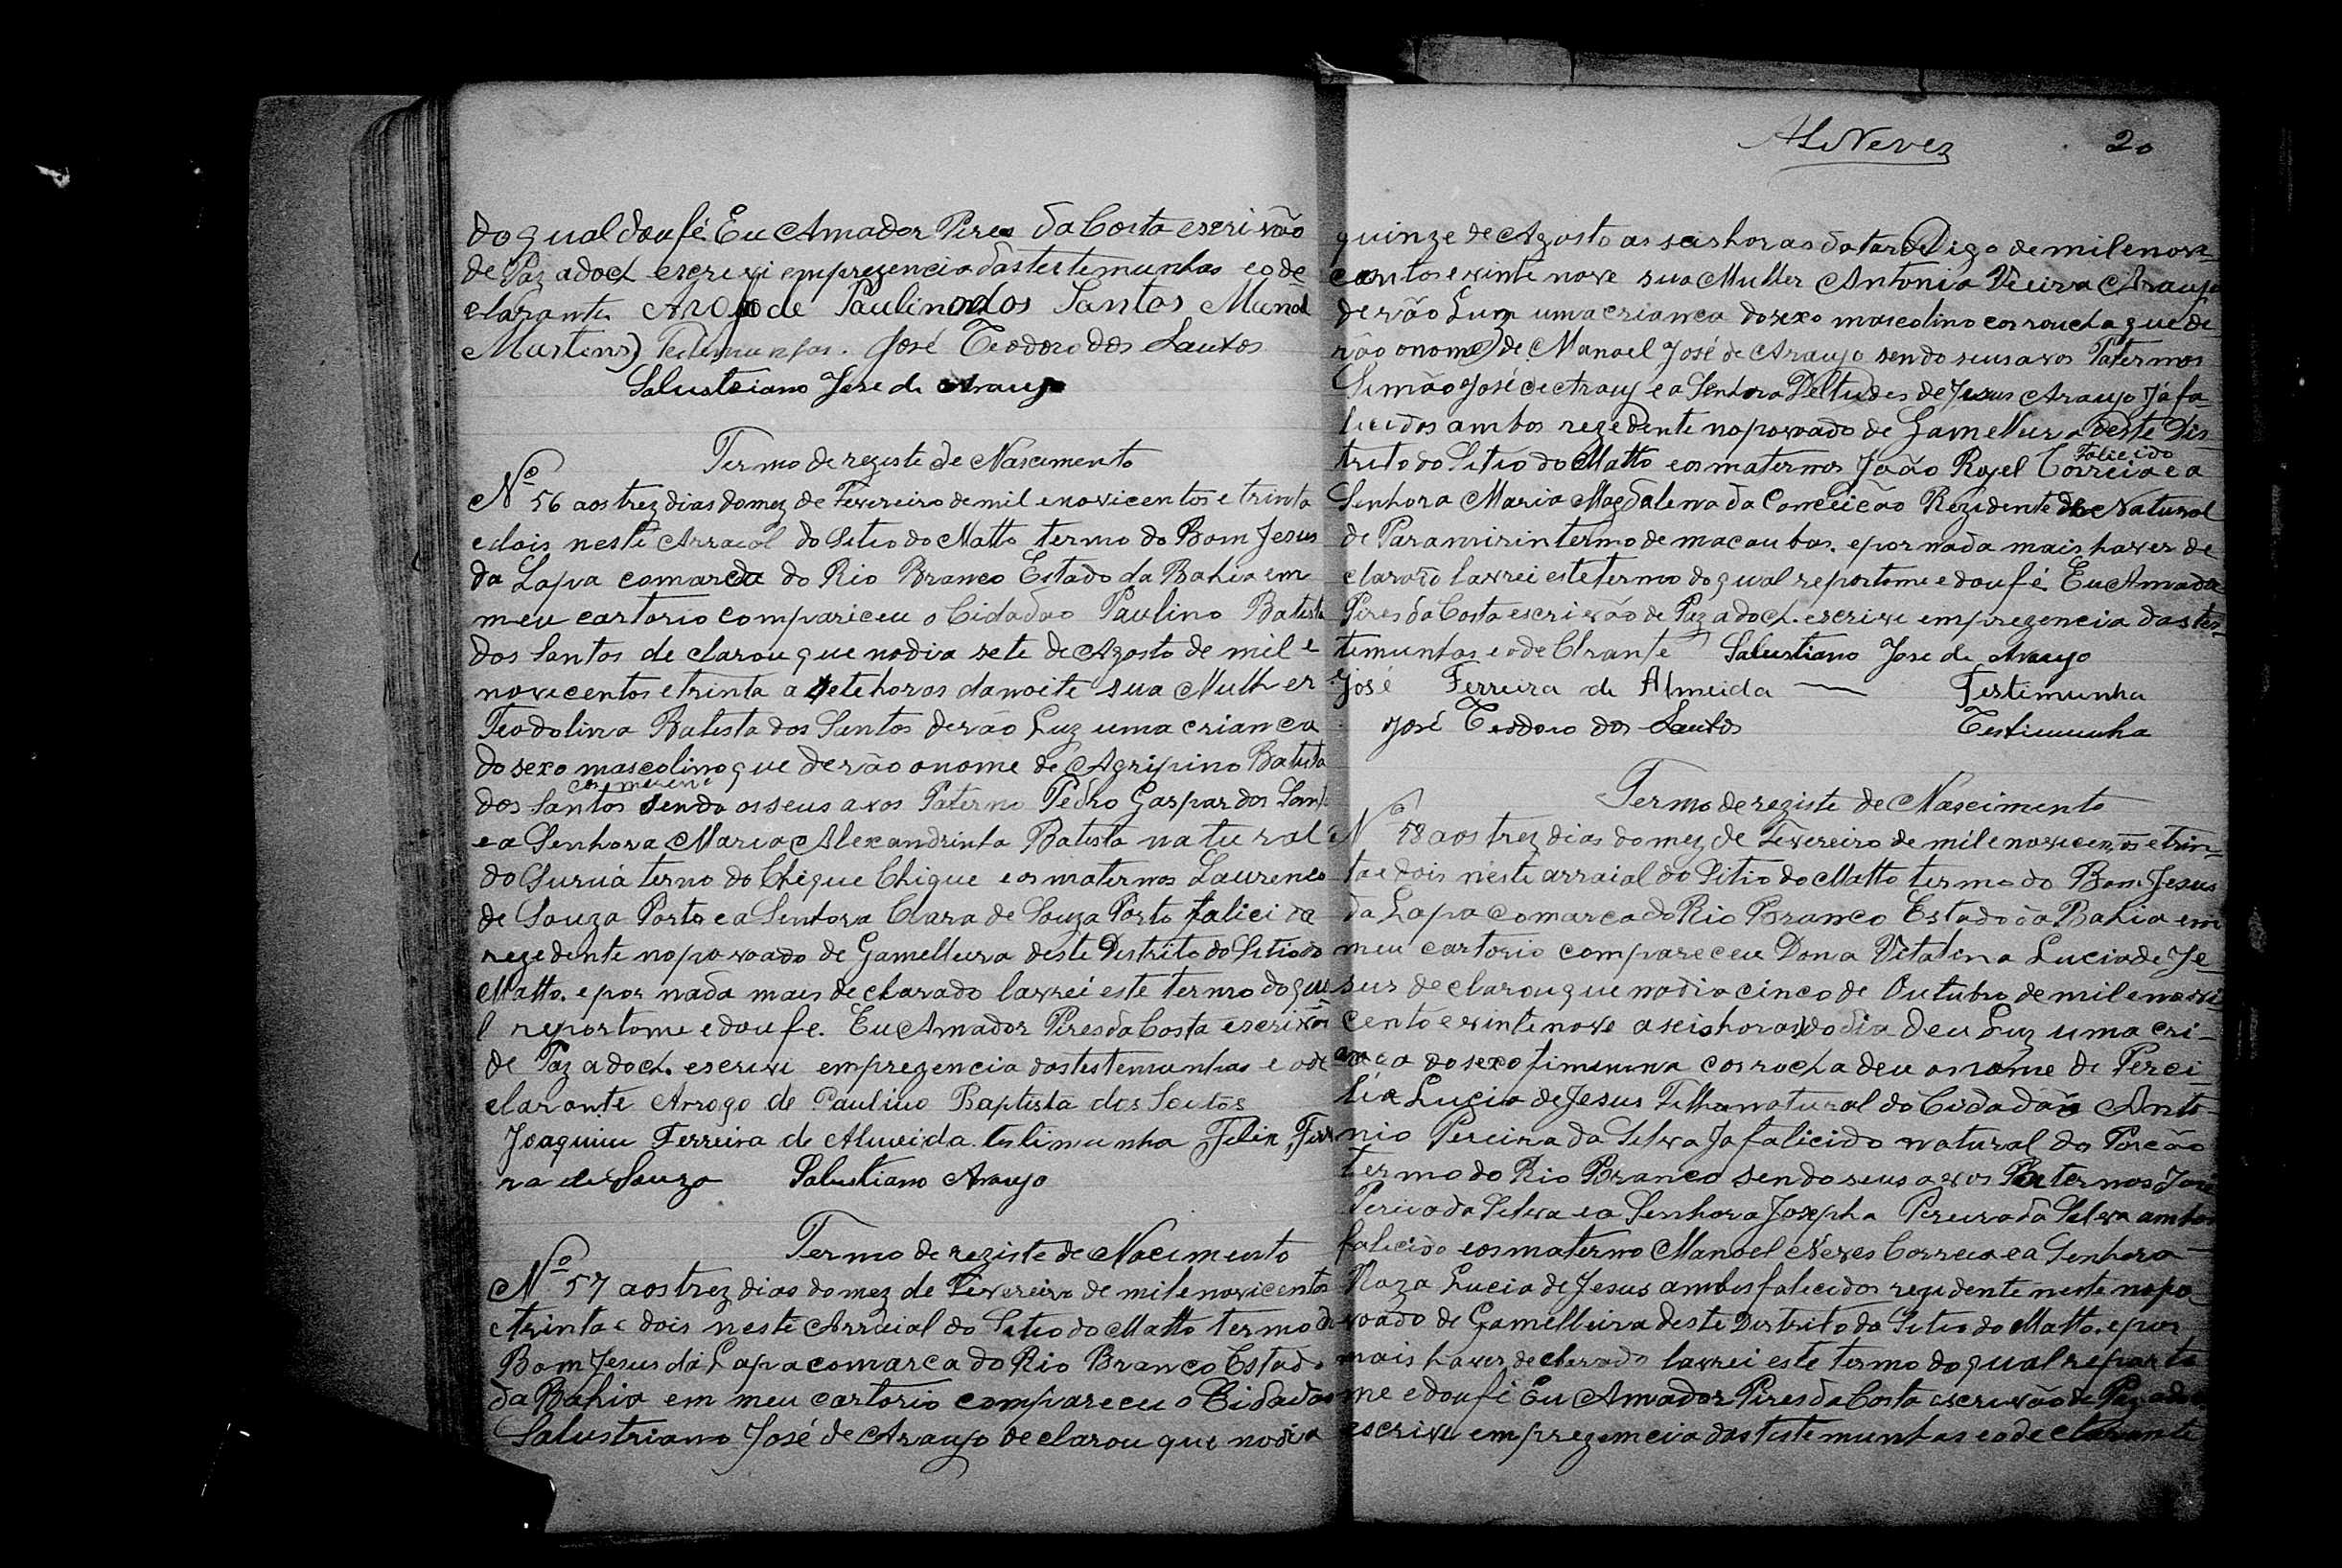 do qual doufé. Eu Amador Pires da Costa escrivão
de Paz adoch escrevi emprezencia dastestemunhas eode
clarante Arogo de Paulino dos Santos Manoel
Martins) Testemunhas. José Teodoro dos Santos
Salustriano Jose de Araujo
Termo de registe de Nascimento
Nº 56 aos trez dias do mez de Fevereiro de mil e novicentos e trinta
e dois neste Arraial do Sitio do Matto termo do Bom Jesus
da Lapa comarca do Rio Branco Estado da Bahia em
meu cartorio compariceu o Cidadão Paulino Batista
dos Santos de clarou que nodia sete de Agosto de mil e
novicentos e trinta a sete horas danoite sua Mulher
Teodolina Batista dos Santos derão Luz uma crianca
do sexo mascolino que derão onome de Agripino Batista
dos Santos sendo osseus avos Paterno Pedro Gaspar dos Sant
e a Senhora Maria Alexandrinha Batista natural
do Guruá termo do Chique Chique e os maternos Laurenco
de Souza Porto e a Senhora Clara de Souza Porto falicida
rezedente nopovoado de Gamelleira deste Destrito do Sitio do
Matto. e por nada mais declarado lavrei este termo do qua
l reportome edoufe. Eu Amador Pires da Costa escrivão
de Paz adoch. escrevi emprezencia dastestemunhas e ode
clarante Arrogo de Paulino Baptista dos Santos
Joaquim Ferreira de Almeida. testimunha Felix Ferr
ra de Souza Salustiano Araujo
Termo de registe de Nacimento
Nº 57 aos trez dias do mez de Fevereiro de mil e novicentos
e trinta e dois neste Arraial do Sitio do Matto termo do
Bom Jesus da Lapa comarca do Rio Branco Estado
da Bahia em meu cartorio compareceu o Cidadão
Salustriano José de Araujo declarou que nodia
ALNeves 20
quinze de Agosto as seis horas datarde Digo de mil e nove
centos e vinte nove sua Mulher Antonia Vieira Araujo
derão Luz uma crianca dosexo mascolino corroucha que de
rão onome) de Manoel José de Araujo sendo seus avos Paternos
Simão José de Arauj e a Senhora Deltudes de Jesus Araujo Já fa-
licidos ambos rezedente nopovoado de Gamelleira deste Dis-
Falicido
trito do Sitio do Matto eos maternos João Rogel Correia e a
Senhora Maria Magdalena da Conceicão Rezidente Natural
de Paramirin termo de macaubas. epor nada mais haver de
clarado lavrei este termo do qual reportome edoufé. Eu Amador
Pires da Costa escrivão de Paz adoch. escrivi emprezencia dastes-
temunhas eode Clrante Salustiano Jose de Araujo
José Ferreira de Almeida — Testimunha
José Teodoro dos Santos Testimunha
Termo de registe de Nascimento
Nº 58 aos trez dias do mez de Fevereiro de mil e novicentos e trin-
ta e dois neste arraial do Sitio do Matto termo do Bom Jesus
da Lapa comarca do Rio Branco Estado da Bahia em
meu cartorio compareceu Dona Vitalina Lucia de Je-
sus declarou que nodia cinco de Outubro de mil e novi-
cento e vinte nove a seis horas do dia deu Luz uma cri-
anca do sexo fiminina corrocha deu onome de Perci-
lia Lucia de Jesus Filha natural do Cidadão Anto-
nio Pereira da Silva Ja falicido natural do Porcão
termo do Rio Branco sendo seus avos Paternos José
Perira da Silva e a Senhora Josepha Pereira da Silva ambos
falicido eos materno Manoel Neves Correia e a Senhora
Roza Lucia de Jesus ambos falicidos rezidente neste nopo
voado de Gamelleira deste Destrito do Sitio do Matto. epor
mais haver declarado lavrei este termo do qual reporto
me edoufé Eu Amador Pires da Costa escrivão de Paz adoch
escrivi emprezencia dastestemunhas eode clarante